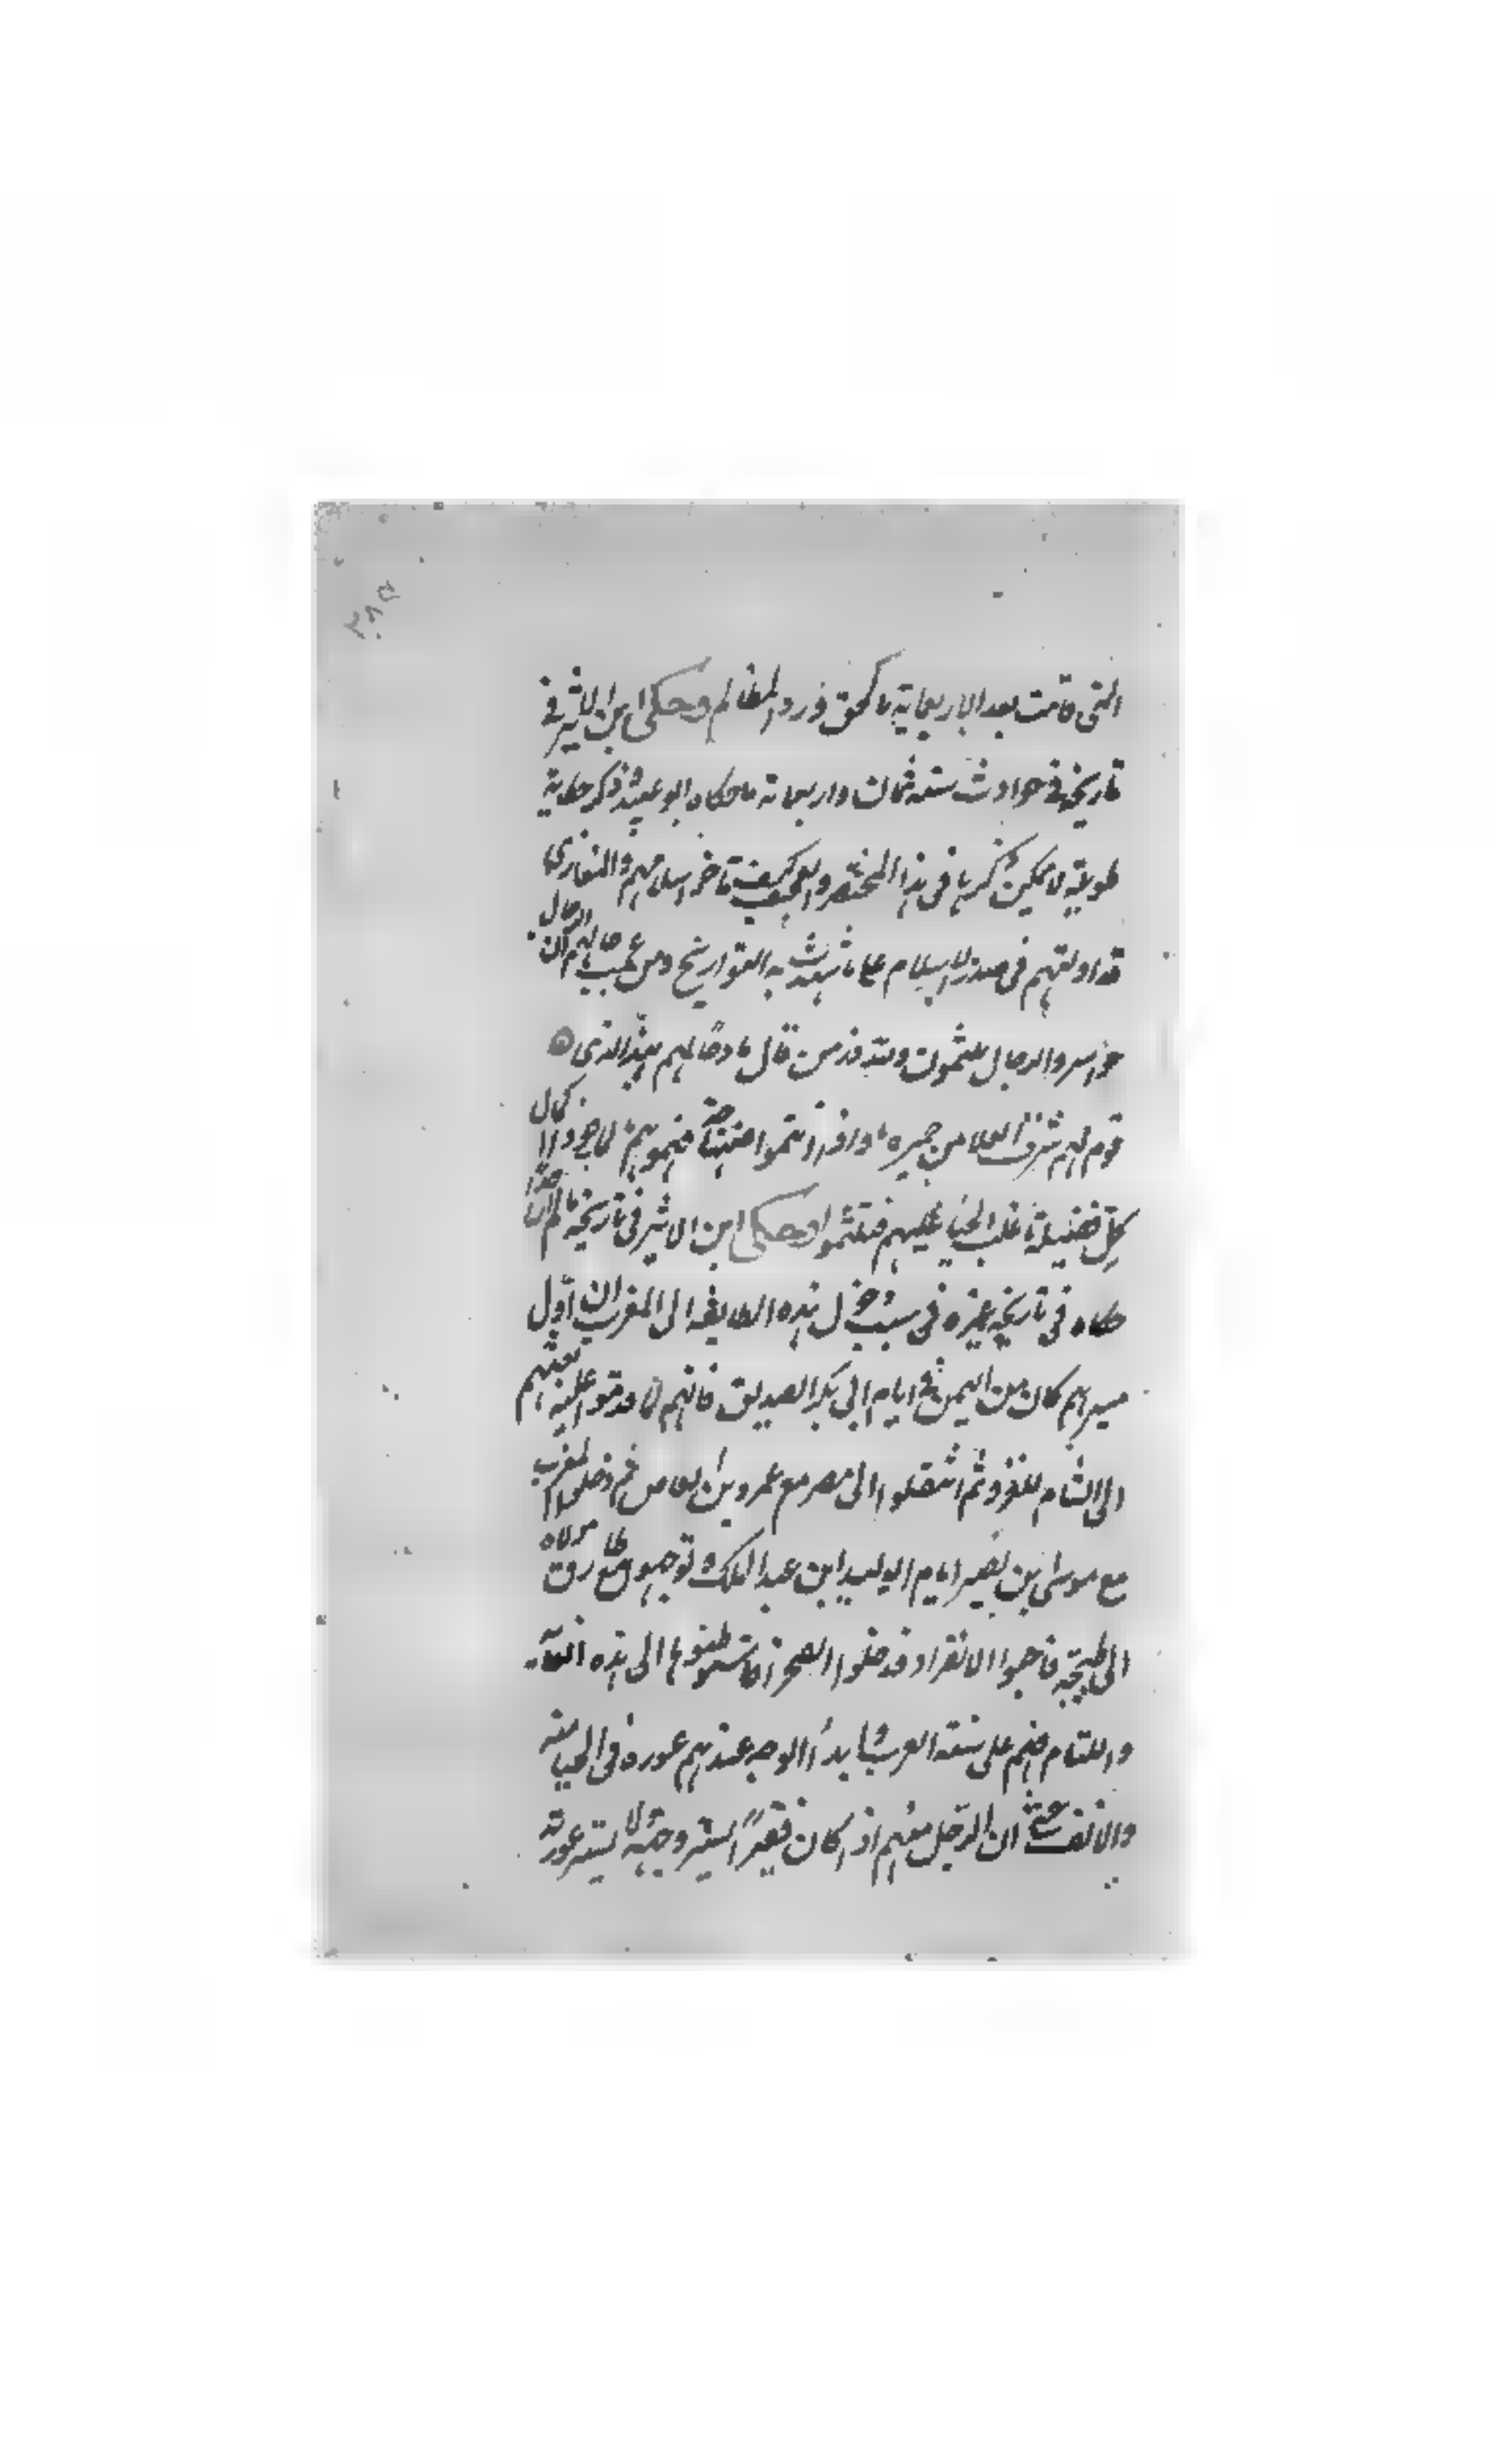 ٢٨٥
التي قامت بعد الاربعماية بالحق ورد المظالم وحكى ابن الاثير في
تاريخه في حوادث سنه ثمان واربعمائة ما حكاه ابو عبيد ذكر حكاية
طويلة لا يمكن ذكرها في هذا المختصر والعجب كيف تاخر اسلامهم والمغازي
قد اولتهم في صدر الاسلام على ما شهدت به التواريخ ومن عجيب حالهم ان الرجال
والرجال ملثمون ولله در من قال مادحا لهم بهذا الذي
قوم لهم شرف العلا من حمير واذا انتموا صنهاجة فهموهم لما حووا كمال
كل فضيلة غلب الحيا عليهم فتلثموا وحكى ابن الاثير في تاريخه
حكاه في تاريخه غيره في سبب دخول هذه الطايفه الى المغرب ان اول
مسيرهم كان من اليمن في ايام ابي بكر الصديق فانهم لما قدموا عليه بعثهم
الى الشام للغزو ثم انتقلوا الى مصر مع عمرو بن العاص ثم دخلوا المغرب
مع موسى بن نصير ايام الوليد ابن عبد الملك وتوجهوا مع مولاه طارق
الى طنجة فاحبوا الانفراد فدخلوا الصحرا فاستوطنوها الى هذه الغاية
واللثام فيهم على سنة العرب الوجه عندهم عورة في الحيا منه
والانف حتى ان الرجل منهم اذا كان فقيرا يستر وجهه ولا يستر عورته